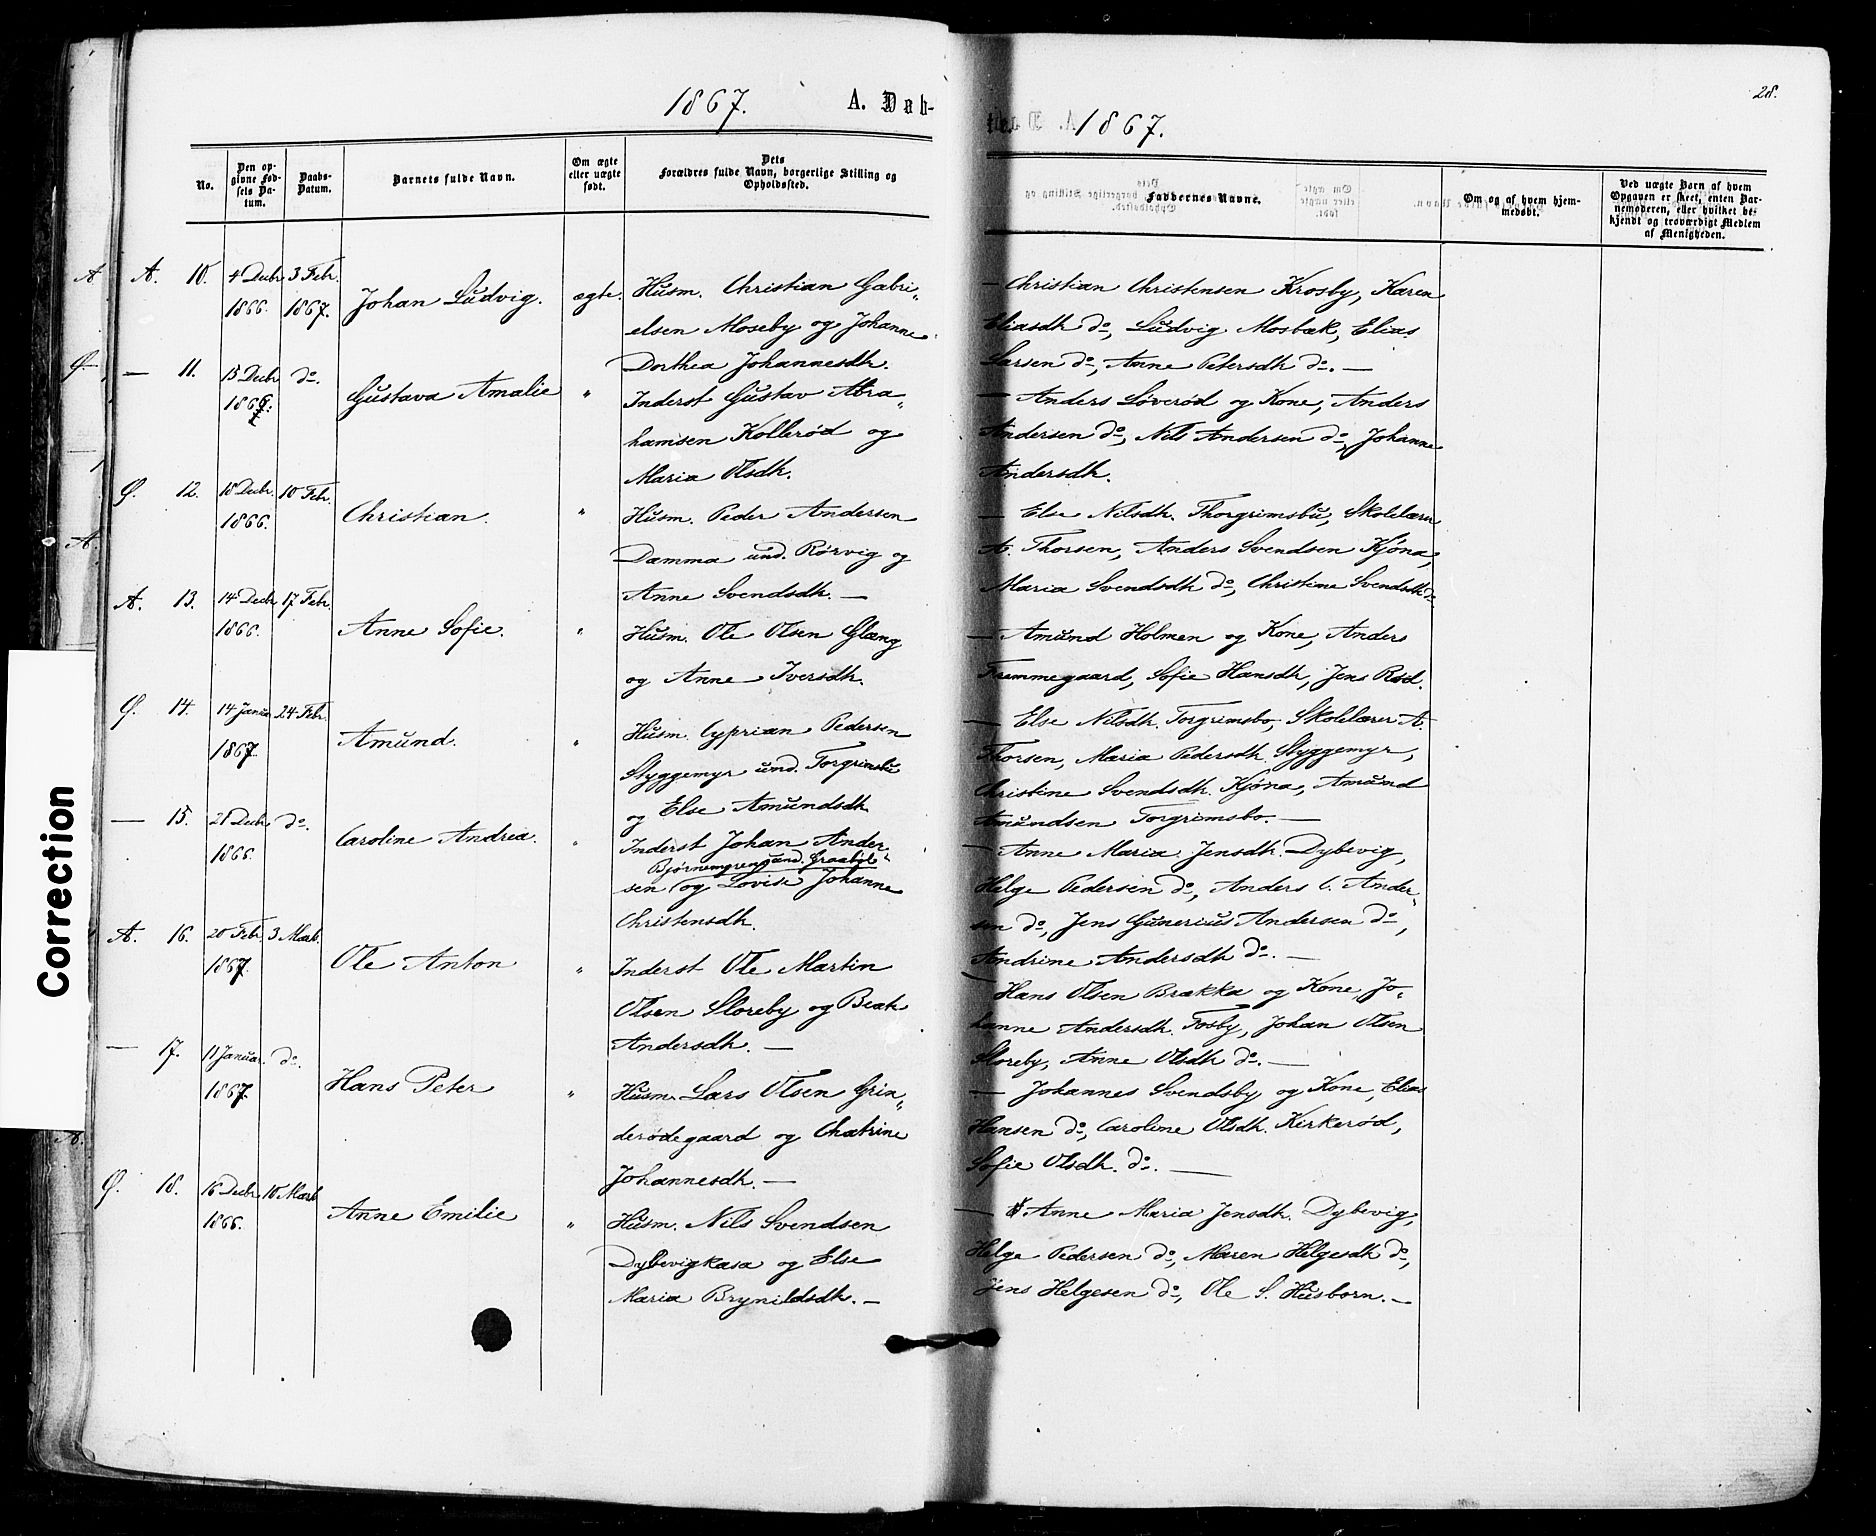 1867.
A. Døb-
No.
Den op-
givne Fød-
sels Da-
tum.
Daabs-
Datum.
Barnets fulde Navn.
Om ægte
eller uægte
født.
Dets
Forældres fulde Navn, borgerlige Stilling og
Opholdssted.
A
A. 10. 4 Decbr. 3 Febr.
1866. 1867.
Johan Ludvig. ægte.
Husm. Christian Gabri„
elsen Moseby og Johanne
Dorthea Johannesdtr.
Ø
— 11. 15 Decbr. do.
1866.
Gustava Amalie "
Inderst Gustav Abra„
hamsen Kollerød og
Maria Olsdtr.
Ø. 12. 18 Decbr. 10 Febr.
1866.
Christian. "
Husm. Peder Andersen
Damma und. Rørvig og
Anne Svendsdtr. —
A.
A. 13. 14 Decbr. 17 Febr.
1866.
Anne Sofie. "
Husm. Ole Olsen Glæng
og Anne Iversdtr.
Ø. 14. 14 Januar 24 Febr.
1867.
Amund. "
Husm. Cyprian Pedersen
Styggemyr und. Torgrimsbu
og Else Amundsdtr
— 15. 21 Decbr. do.
1866.
Caroline Andrea. "
Inderst Johan Ander
Bjørnemyren und. Graabøl
sen og Lovise Johanne
Christensdtr.
A. 16. 20 Febr. 3 Marts.
1867.
Ole Anton "
Inderst Ole Martin
Olsen Storeby og Beate
Andersdtr. —
— 17. 11 Januar. do.
1867.
Hans Peter "
Husm. Lars Olsen Grin„
derødegaard og Chatrine
Johannesdtr. —
A.
Ø. 18. 16 Decbr. 10 Marts
1866.
Anne Emilie "
Husm. Nils Svendsen
Dybevigkasa og Else
Maria Brynildsdtr. —
Correction
28.
1867.
Faddernes Navne.
Om og af hvem hjem-
medøbt.
Ved uægte Barn af hvem
Opgaven er skeet, enten Bar-
nemoderen, eller hvilket be-
kjendt og troværdigt Medlem
af Menigheden.
— Christian Christensen Krosby, Karen
Eliasdtr do, Ludvig Mosbæk, Elias
Larsen do, Anne Petersdtr do. —
— Anders Løverød og Kone, Anders
Andersen do, Nils Andersen do, Johanne
Andersdtr.
— Else Nilsdtr. Thorgrimsbu, Skolelærer
A. Thorsen, Anders Svendsen Kjøna,
Maria Svendsdtr do, Christine Svendsdtr do
— Amund Holmen og Kone, Anders
Fremmegaard, Sofie Hansdtr, Jens Rød.
— Else Nilsdtr. Torgrimsbo, Skolelærer A.
Thorsen, Maria Pedersdtr. Styggemyr,
Christine Svendsdtr. Kjøna, Amund
Amundsen Torgrimsbo. —
— Anne Maria Jensdtr. Dybevig,
Helge Pedersen do, Anders C. Ander„
sen do, Jens Gunerius Andersen do,
Andrine Andersdtr do. —
— Hans Olsen Brække og Kone, Jo„
hanne Andersdtr. Tosby, Johan Olsen
Storeby, Anne Olsdtr do. —
— Johannes Svendsby og Kone, Elias
Hansen do, Caroline Olsdtr. Kirkerød,
Sofie Olsdtr. do. —
— Anne Maria Jensdtr. Dybevig,
Helge Pedersen do, Maren Helgesdtr do,
Jens Helgesen do, Ole S. Husborn. —